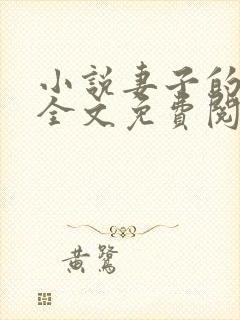 小說妻子的
全文免費閱
黃鷺